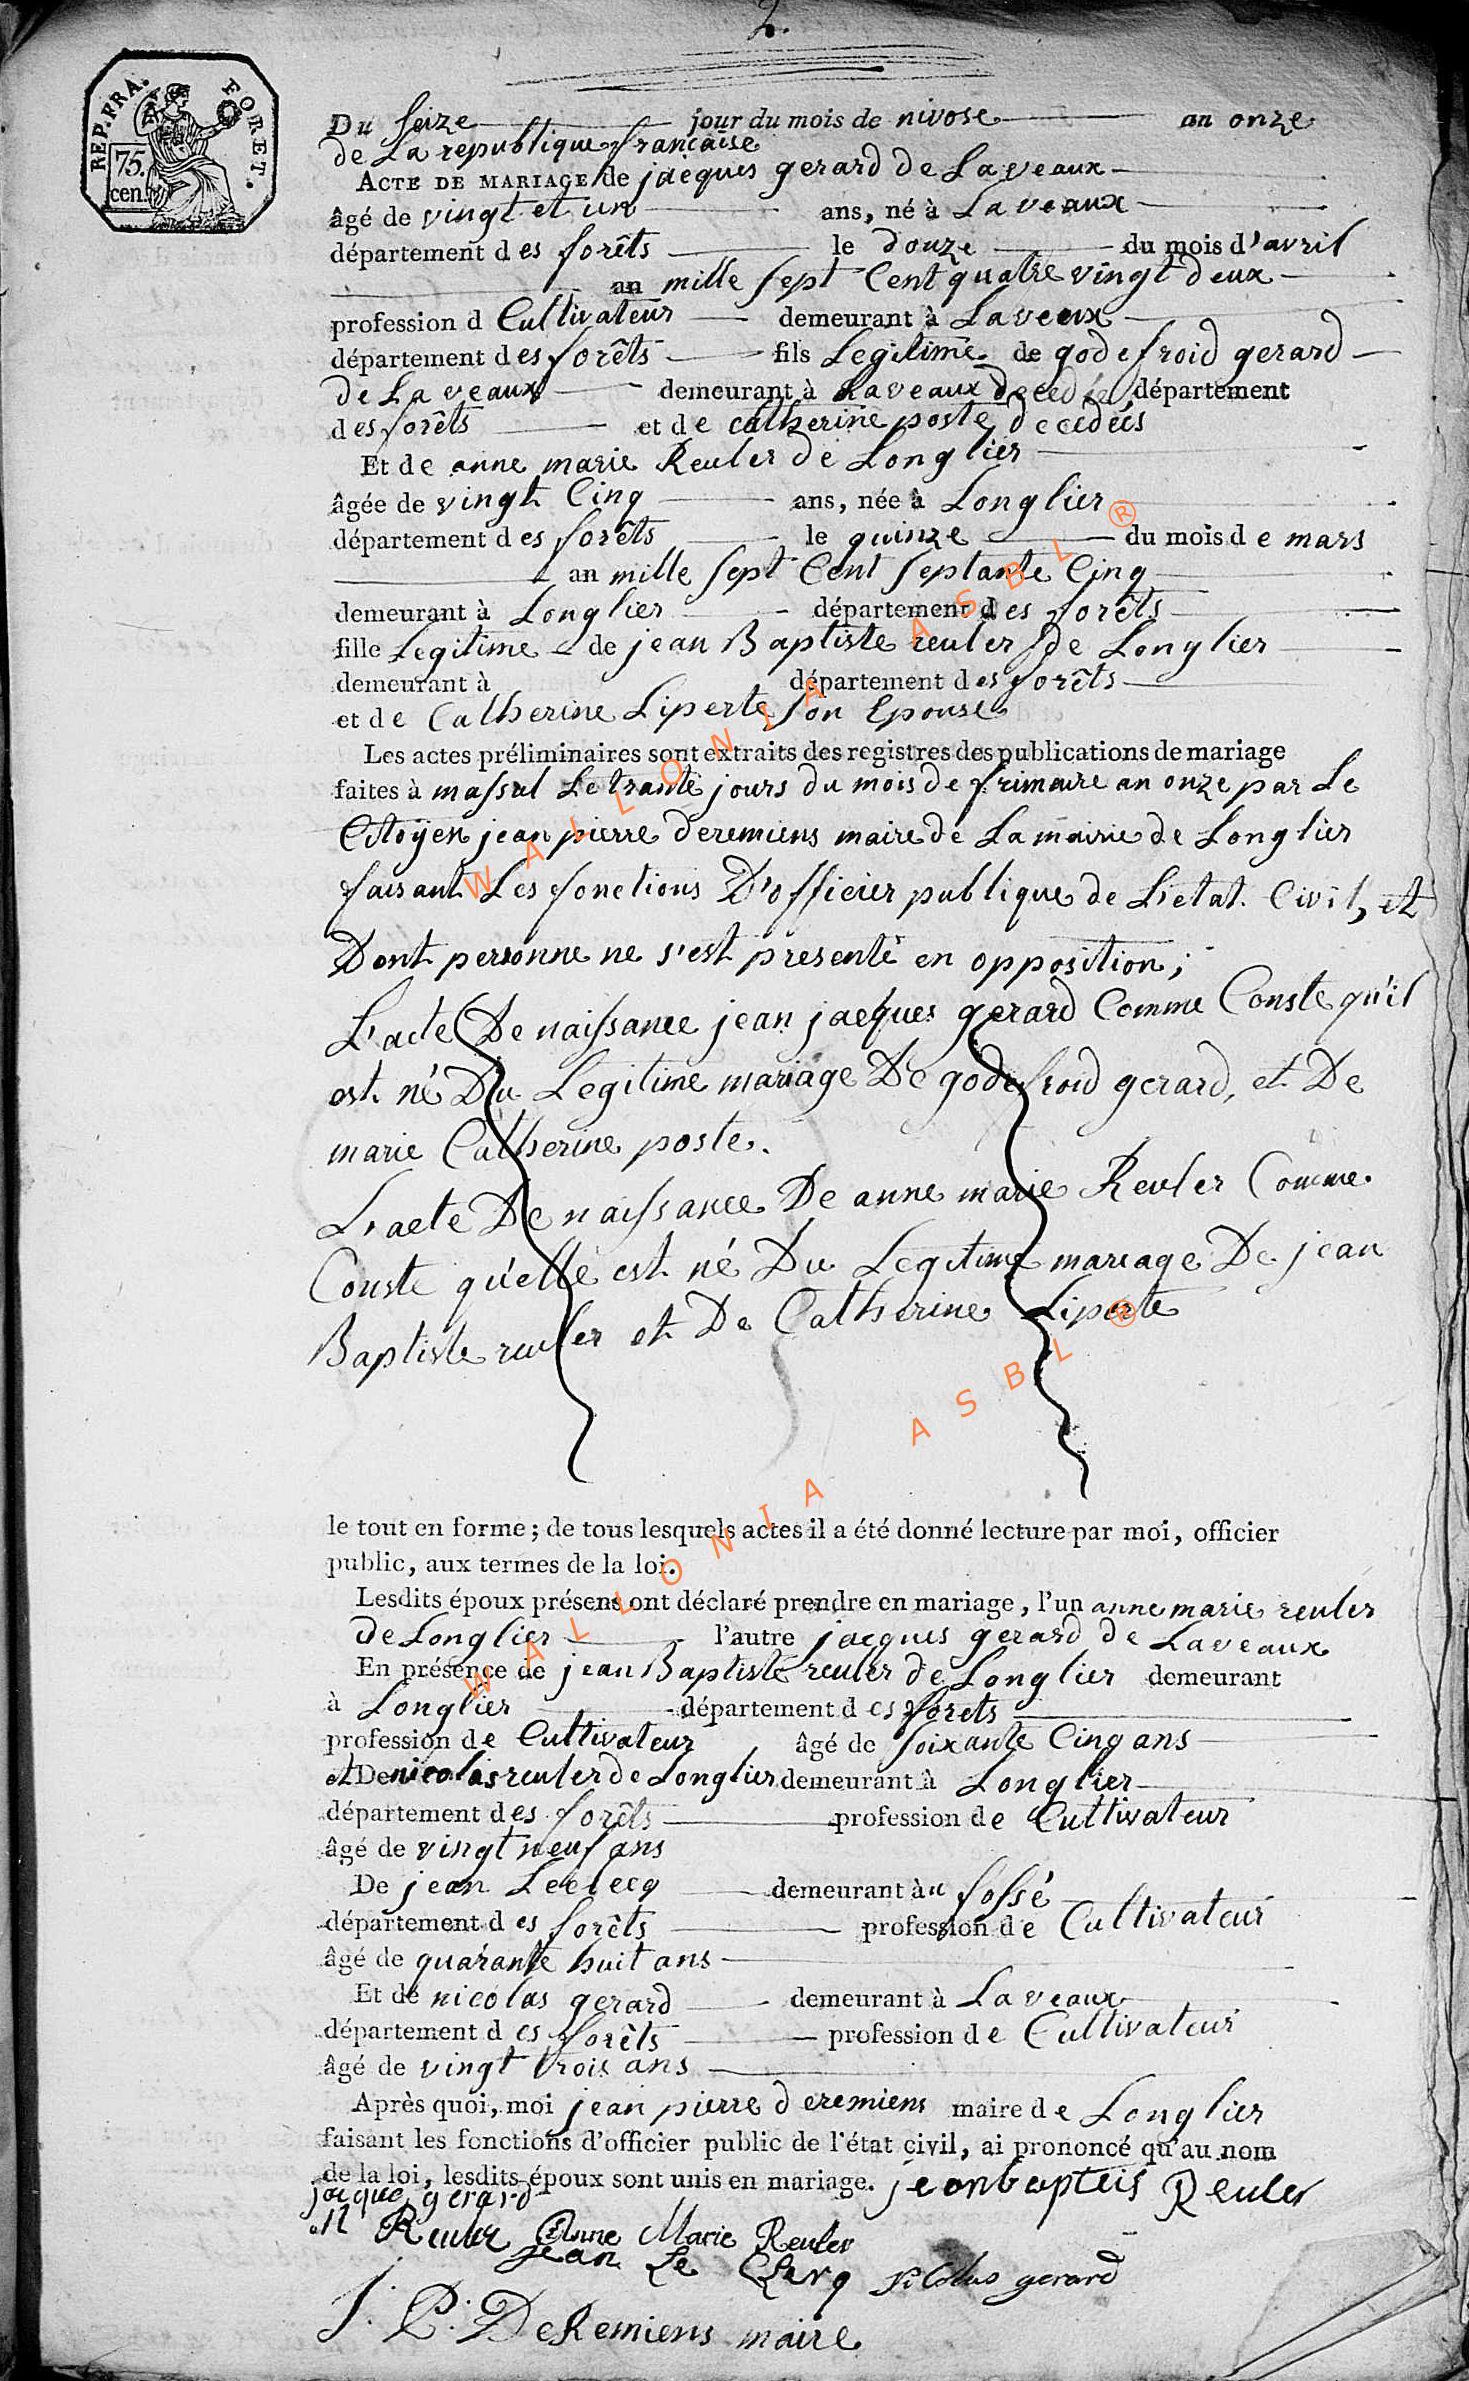 2.
REP. FRA. FORET.
75.
cen.
Du seize jour du mois de nivose an onze
de La republique francaise
ACTE DE MARIAGE de jacques gerard de Laveaux
âgé de vingt et un ans, né à Laveaux
département des forêts le douze du mois d'avril
an mille sept Cent quatre vingt deux
profession d Cultivateur demeurant à Laveaux
département des forêts fils Legitime de godefroid gerard
de Laveaux demeurant à Laveaux decedée département
des forêts et de catherine poste decedéés
Et de anne marie Reuler de Longlier
âgée de vingt Cinq ans, née à Longlier
département des forêts le quinze du mois de mars
an mille sept Cent septante Cinq
demeurant à Longlier département des forêts
fille Legitime de jean Baptiste reuler de Longlier
demeurant à département des forêts
et de Catherine Liperte son Epouse
Les actes préliminaires sont extraits des registres des publications de mariage
faites à massul Le trante jours du mois de frimaire an onze par Le
Citoÿen jean pierre deremiens maire de La mairie de Longlier
faisant Les fonctions D'officier publique de L'etat Civil, et
Dont personne ne s'est presenté en opposition;
L'acte De naissance jean jacques gerard Comme Conste qu'il
est né Du Legitime mariage De godefroid gerard, et De
marie Catherine poste.
L'acte De naissance De anne marie Reuler Comme
Conste qu'elle est né Du Legitime mariage De jean
Baptiste reuler et De Catherine Liperte
le tout en forme; de tous lesquels actes il a été donné lecture par moi, officier
public, aux termes de la loi.
Lesdits époux présens ont déclaré prendre en mariage, l'un anne marie reuler
de Longlier l'autre jacques gerard de Laveaux
En présence de jean Baptiste reuler de Longlier demeurant
à Longlier département des forets
profession de Cultivateur âgé de soixante Cinq ans
et De nicolas reuler de Longlier demeurant à Longlier
département des forêts profession de Cultivateur
âgé de vingt neuf ans
De jean Leclecq demeurant àu fossé
département des forêts profession de Cultivateur
âgé de quarante huit ans
Et de nicolas gerard demeurant à Laveaux
département des forêts profession de Cultivateur
âgé de vingt trois ans
Après quoi, moi jean pierre deremiens maire de Longlier
faisant les fonctions d'officier public de l'état civil, ai prononcé qu'au nom
de la loi, lesdits époux sont unis en mariage. jeanbapteis Reuler
jacque gerard
n Reuler Anne Marie Reuler
jean Le Clerq nicolas gerard
J. P. DeRemiens maire
WALLONIA ASBL ®
WALLONIA ASBL ®